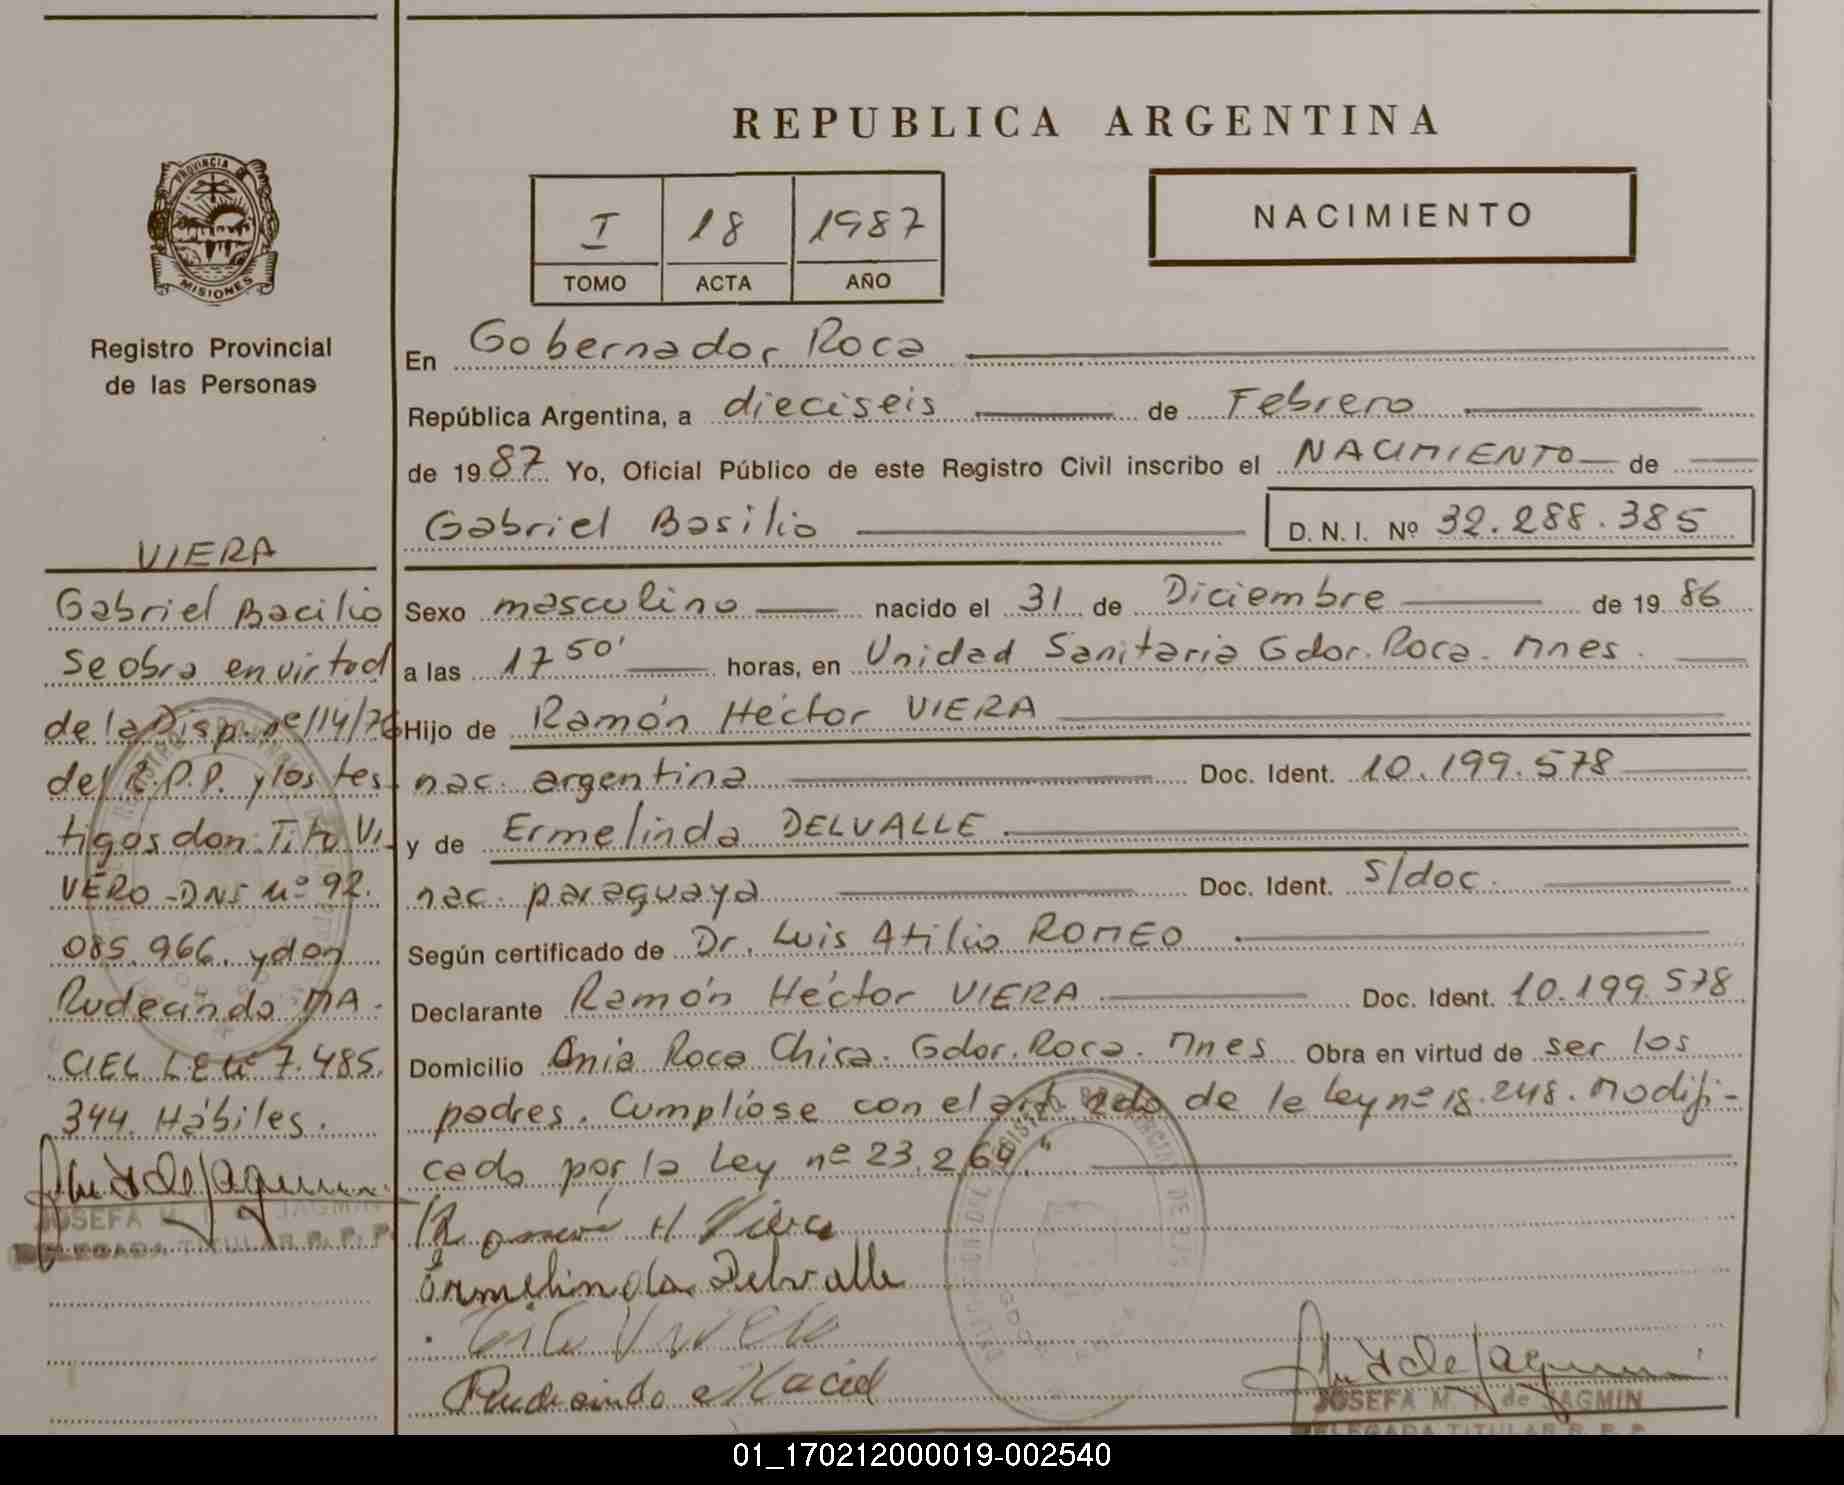 REPUBLICA ARGENTINA
PROVINCIA DE
MISIONES
I 18 1987
TOMO ACTA AÑO
NACIMIENTO
Registro Provincial
de las Personas
VIERA
Gabriel Bacilio
Se obra en virtud
de la Disp. nº 114/76
del R.P.P. y los tes-
tigos don: Tito VI-
VERO - DNI Nº 92.
085.966. y don
Rudecindo MA-
CIEL L.E Nº 7.485.
344. Hábiles.
JOSEFA M. JAGMIN
DELEGADA TITULAR R. P. P.
En Gobernador Roca
República Argentina, a dieciseis de Febrero
de 1987 Yo, Oficial Público de este Registro Civil inscribo el NACIMIENTO de
Gabriel Basilio D. N. I. Nº 32.288.385
Sexo masculino nacido el 31 de Diciembre de 1986
a las 17 50' horas, en Unidad Sanitaria Gdor. Roca. Mnes.
Hijo de Ramón Héctor VIERA
nac. argentina Doc. Ident. 10.199.578
y de Ermelinda DELVALLE
nac. paraguaya Doc. Ident. S/doc.
Según certificado de Dr. Luis Atilio ROMEO
Declarante Ramón Héctor VIERA Doc. Ident. 10.199.578
Domicilio Roca Chica. Gdor. Roca. Mnes Obra en virtud de ser los
padres. Cumplíose con el art. 2do de la Ley nº 18.248. Modifi-
cada por la Ley nº 23.264."
Ramón H. Viera
Ermelinda Delvalle
Tito Vivero
Rudecindo Maciel
JOSEFA M. de JAGMIN
DELEGADA TITULAR R. P. P.
01_170212000019-002540